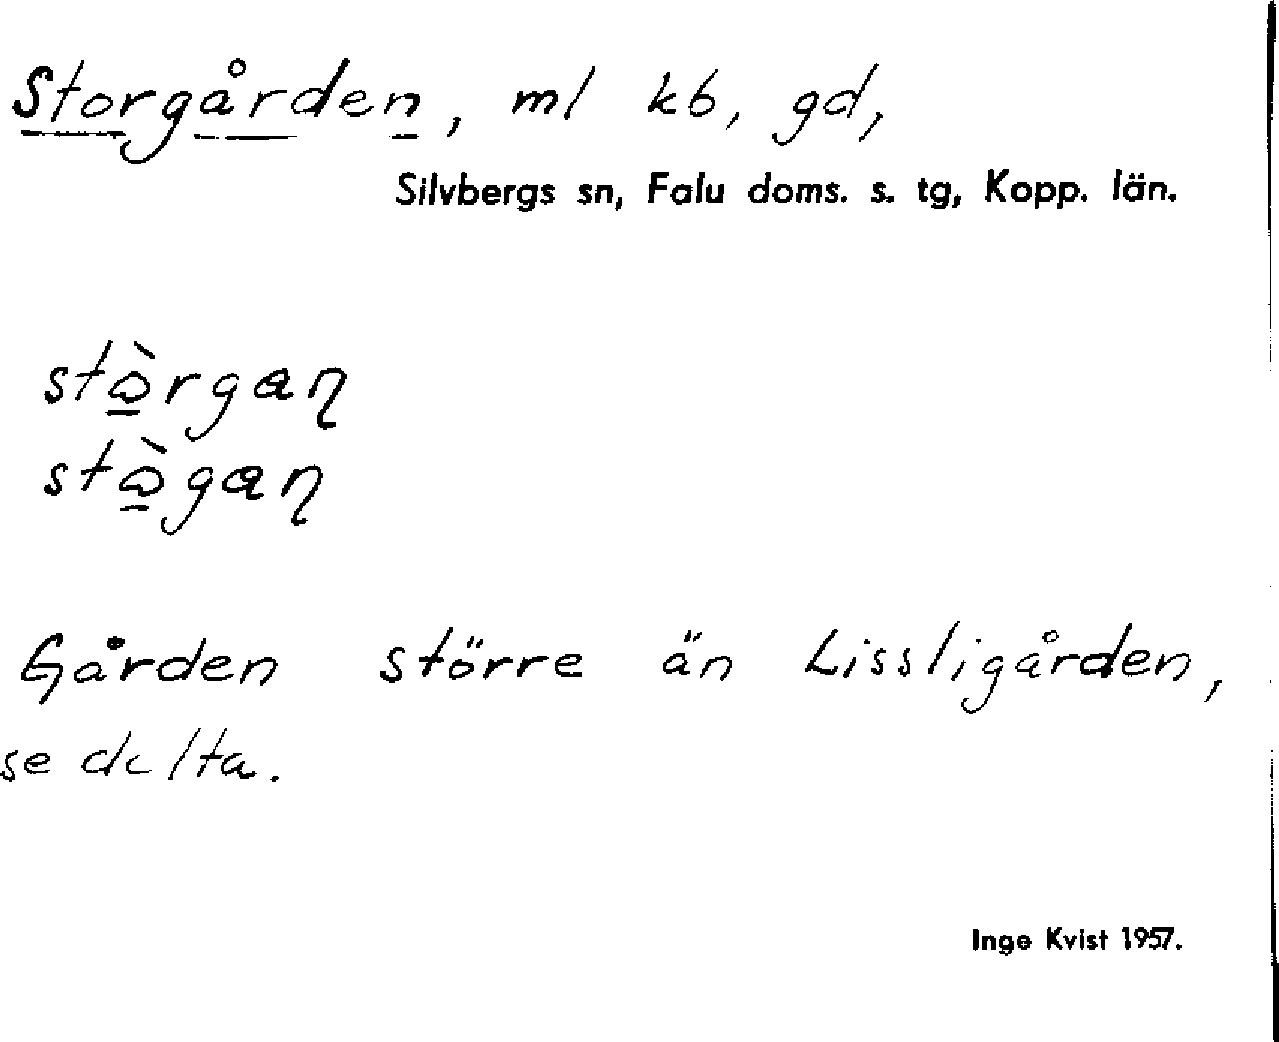 Storgården, ml kb, gd,
Silvbergs sn, Falu doms. s. tg, Kopp. län.
stɷ̠̀rgaɳ
stɷ̠̀gaɳ
Gården större än Lissligården,
se detta.
Inge Kvist 1957.